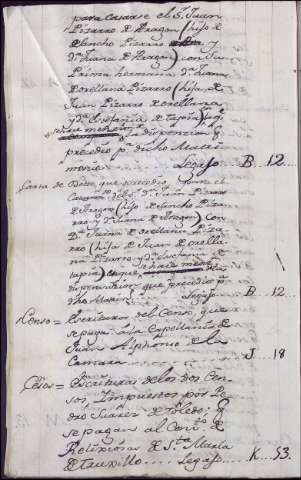 para casarse el S.r Juan
Pizarro de Aragon (hijo de
Sancho Pizarro y
D.ª Juana de Aragon) con su
Prima hermana D.ª Juana
de orellana Pizarro (hija de
Juan Pizarro de orellana
y D.ª Estefania de tapia) que
se hace mencion
la dispensacion q
precedio p.ª dicho Matri
monio Legajo B. 12.
Carta de Dote, que precedio
Casam.to del S.r D.n Juan Pizarro
de Aragon (hijo de Sancho Piza
rro y D.ª Juana de Aragon) con
D.ª Juana de orellana Piza
rro (hija de Juan de orella
na Pizarro y D.ª Estefania de
tapia) en que se hace mencion
dispensacion que precedio p.ª
dho Matrim.o Legajo B. 12
Censo = Escrituras del Censo, que
se paga a la Capellania de
Juan Alphonso de la
Camara J. 18
Censos = Escrituras de los dos Cen
sos, Impuestos por Pe
dro Suarez de Toledo; q
se pagan al Conv.to de
Religiosas de S.ta Maria
de truxillo Legajo K. 53.